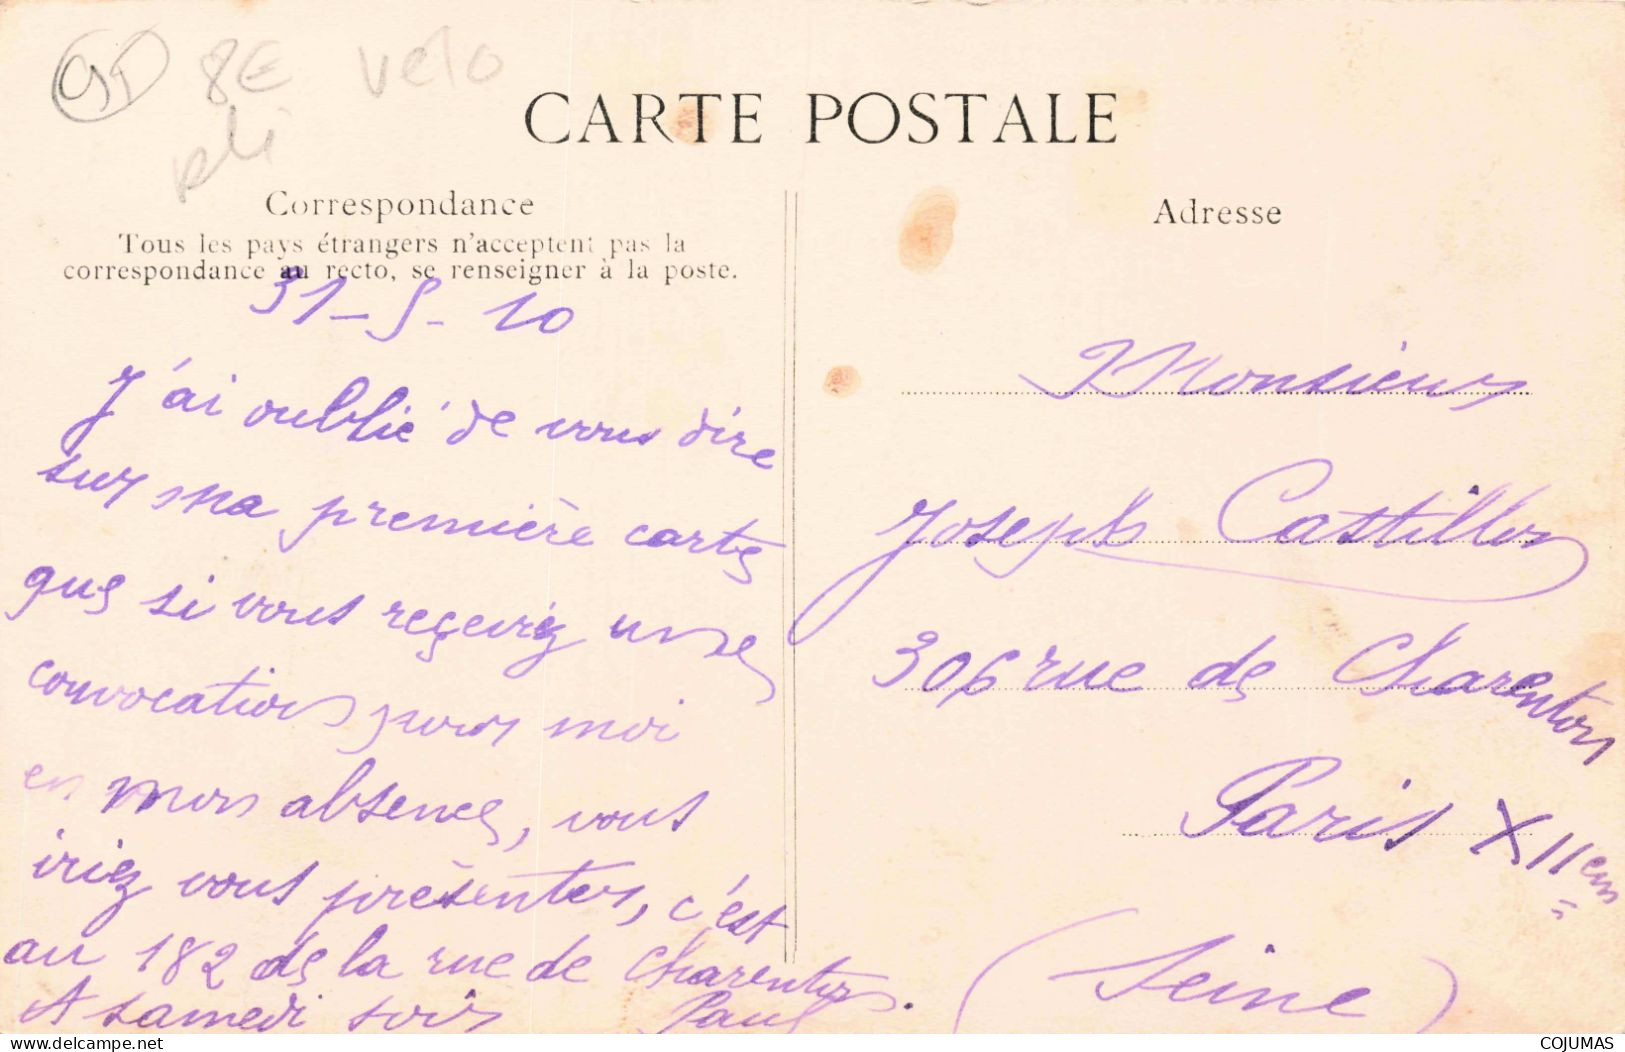 8E velo
pli
CARTE POSTALE
Correspondance
Tous les pays étrangers n'acceptent pas la
correspondance au recto, se renseigner à la poste.
31-5-10
J'ai oublié de vous dire
sur ma première carte
que si vous reçeviez une
convocation pour moi
en mon absence, vous
iriez vous présenter, c'est
au 182 de la rue de Charenton.
A samedi soir Paul
Adresse
Monsieur
Joseph Castillon
306 rue de Charenton
Paris XIIem
(Seine)
delcampe.net
COJUMAS